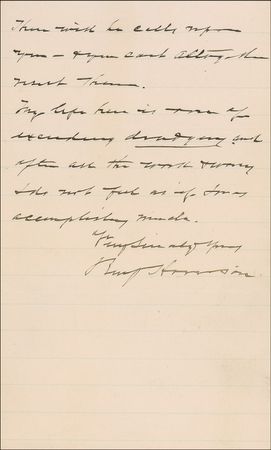 There will be calls upon
you - & you cant altogether
resist them.
My life here is one of
exceeding drudgery and
after all the work & worry
I do not feel as if I was
accomplishing much.
Very Sincerely Yours
Benj Harrison